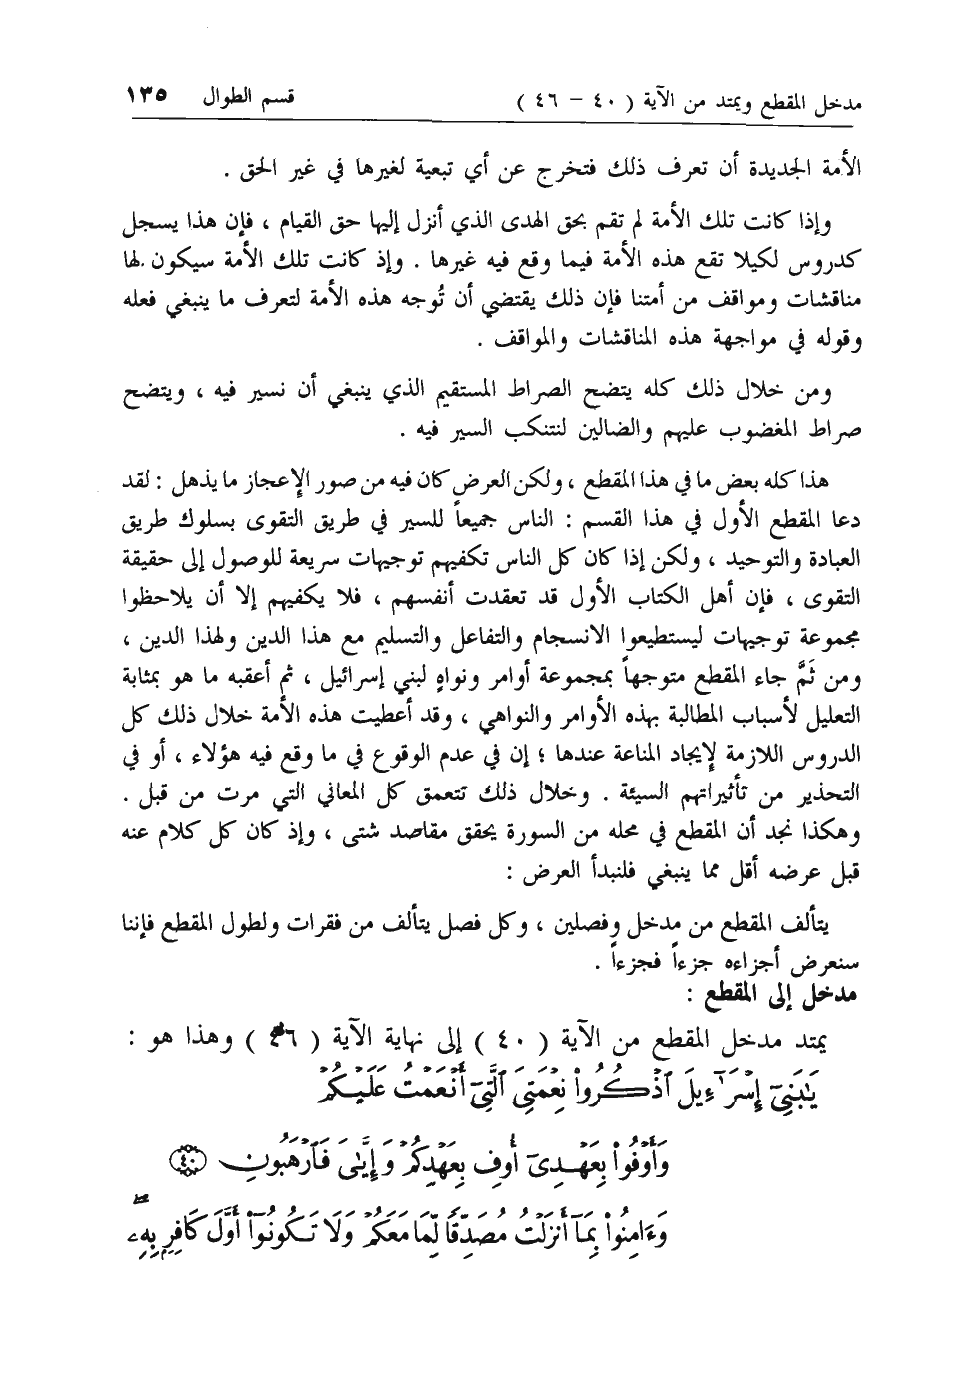 مدخل المقطع ويمتد من الآية ( ٤٠ – ٤٦ ) قسم الطوال ١٣٥
الأمة الجديدة أن تعرف ذلك فتخرج عن أي تبعية لغيرها في غير الحق .
وإذا كانت تلك الأمة لم تقم بحق الهدى الذي أنزل إليها حق القيام ، فإن هذا يسجل
كدروس لكيلا تقع هذه الأمة فيما وقع فيه غيرها . وإذ كانت تلك الأمة سيكون لها
مناقشات ومواقف من أمتنا فإن ذلك يقتضي أن تُوجه هذه الأمة لتعرف ما ينبغي فعله
وقوله في مواجهة هذه المناقشات والمواقف .
ومن خلال ذلك كله يتضح الصراط المستقيم الذي ينبغي أن نسير فيه ، ويتضح
صراط المغضوب عليهم والضالين لنتنكب السير فيه .
هذا كله بعض ما في هذا المقطع ، ولكن العرض كان فيه من صور الإعجاز ما يذهل : لقد
دعا المقطع الأول في هذا القسم : الناس جميعاً للسير في طريق التقوى بسلوك طريق
العبادة والتوحيد ، ولكن إذا كان كل الناس تكفيهم توجيهات سريعة للوصول إلى حقيقة
التقوى ، فإن أهل الكتاب الأول قد تعقدت أنفسهم ، فلا يكفيهم إلا أن يلاحظوا
مجموعة توجيهات ليستطيعوا الانسجام والتفاعل والتسليم مع هذا الدين ولهذا الدين ،
ومن ثَمَّ جاء المقطع متوجهاً بمجموعة أوامر ونواهٍ لبني إسرائيل ، ثم أعقبه ما هو بمثابة
التعليل لأسباب المطالبة بهذه الأوامر والنواهي ، وقد أعطيت هذه الأمة خلال ذلك كل
الدروس اللازمة لإيجاد المناعة عندها ؛ إن في عدم الوقوع في ما وقع فيه هؤلاء ، أو في
التحذير من تأثيراتهم السيئة . وخلال ذلك تتعمق كل المعاني التي مرت من قبل .
وهكذا نجد أن المقطع في محله من السورة يحقق مقاصد شتى ، وإذ كان كل كلام عنه
قبل عرضه أقل مما ينبغي فلنبدأ العرض :
يتألف المقطع من مدخل وفصلين ، وكل فصل يتألف من فقرات ولطول المقطع فإننا
سنعرض أجزاءه جزءاً فجزءاً .
مدخل إلى المقطع :
يمتد مدخل المقطع من الآية ( ٤٠ ) إلى نهاية الآية ( ٤٦ ) وهذا هو :
يَٰبَنِيٓ إِسۡرَٰٓءِيلَ ٱذۡكُرُواْ نِعۡمَتِيَ ٱلَّتِيٓ أَنۡعَمۡتُ عَلَيۡكُمۡ
وَأَوۡفُواْ بِعَهۡدِيٓ أُوفِ بِعَهۡدِكُمۡ وَإِيَّٰيَ فَٱرۡهَبُونِ ٤٠
وَءَامِنُواْ بِمَآ أَنزَلۡتُ مُصَدِّقٗا لِّمَا مَعَكُمۡ وَلَا تَكُونُوٓاْ أَوَّلَ كَافِرِۭ بِهِۦۖ